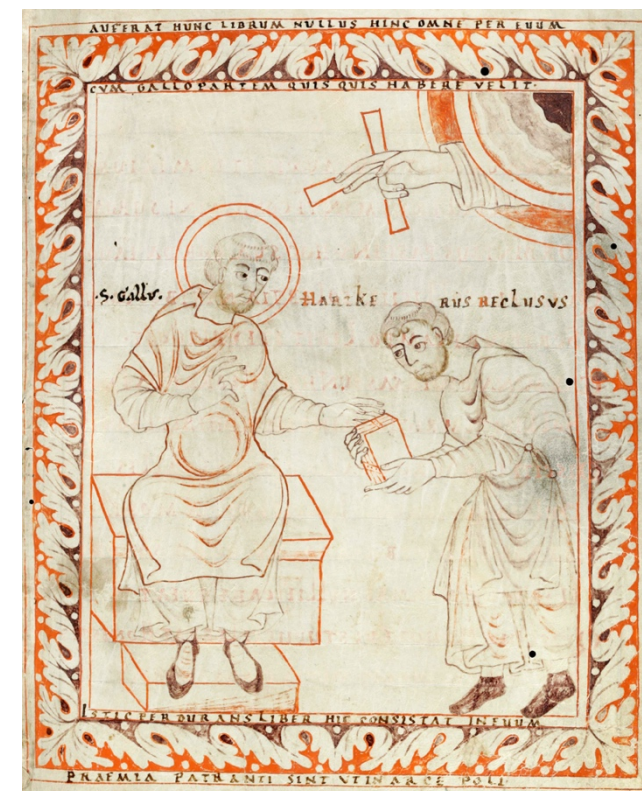 AUFERAT HUNC LIBRUM NULLUS HINC OMNE PER EUUM
CVM GALLO PARTEM QUIS QUIS HABERE VELIT·
·S· Gallv·
HARTKERUS RECLUSVS
ISTIC PERDURANS LIBER HIC CONSISTAT IN EUUM
PRAEMIA PATRANTI SINT VT IN ARCE POLI